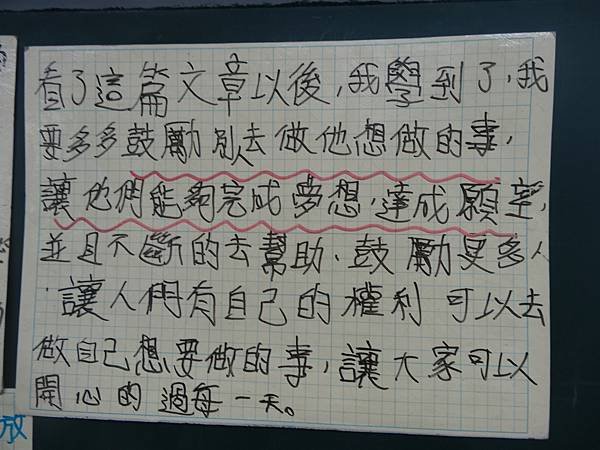 看了這篇文章以後,我學到了,我
要多多鼓勵別人去做他想做的事,
讓他們能夠完成夢想,達成願望,
並且不斷的去幫助、鼓勵更多人
,讓人們有自己的權利可以去
做自己想要做的事,讓大家可以
開心的過每一天。
放